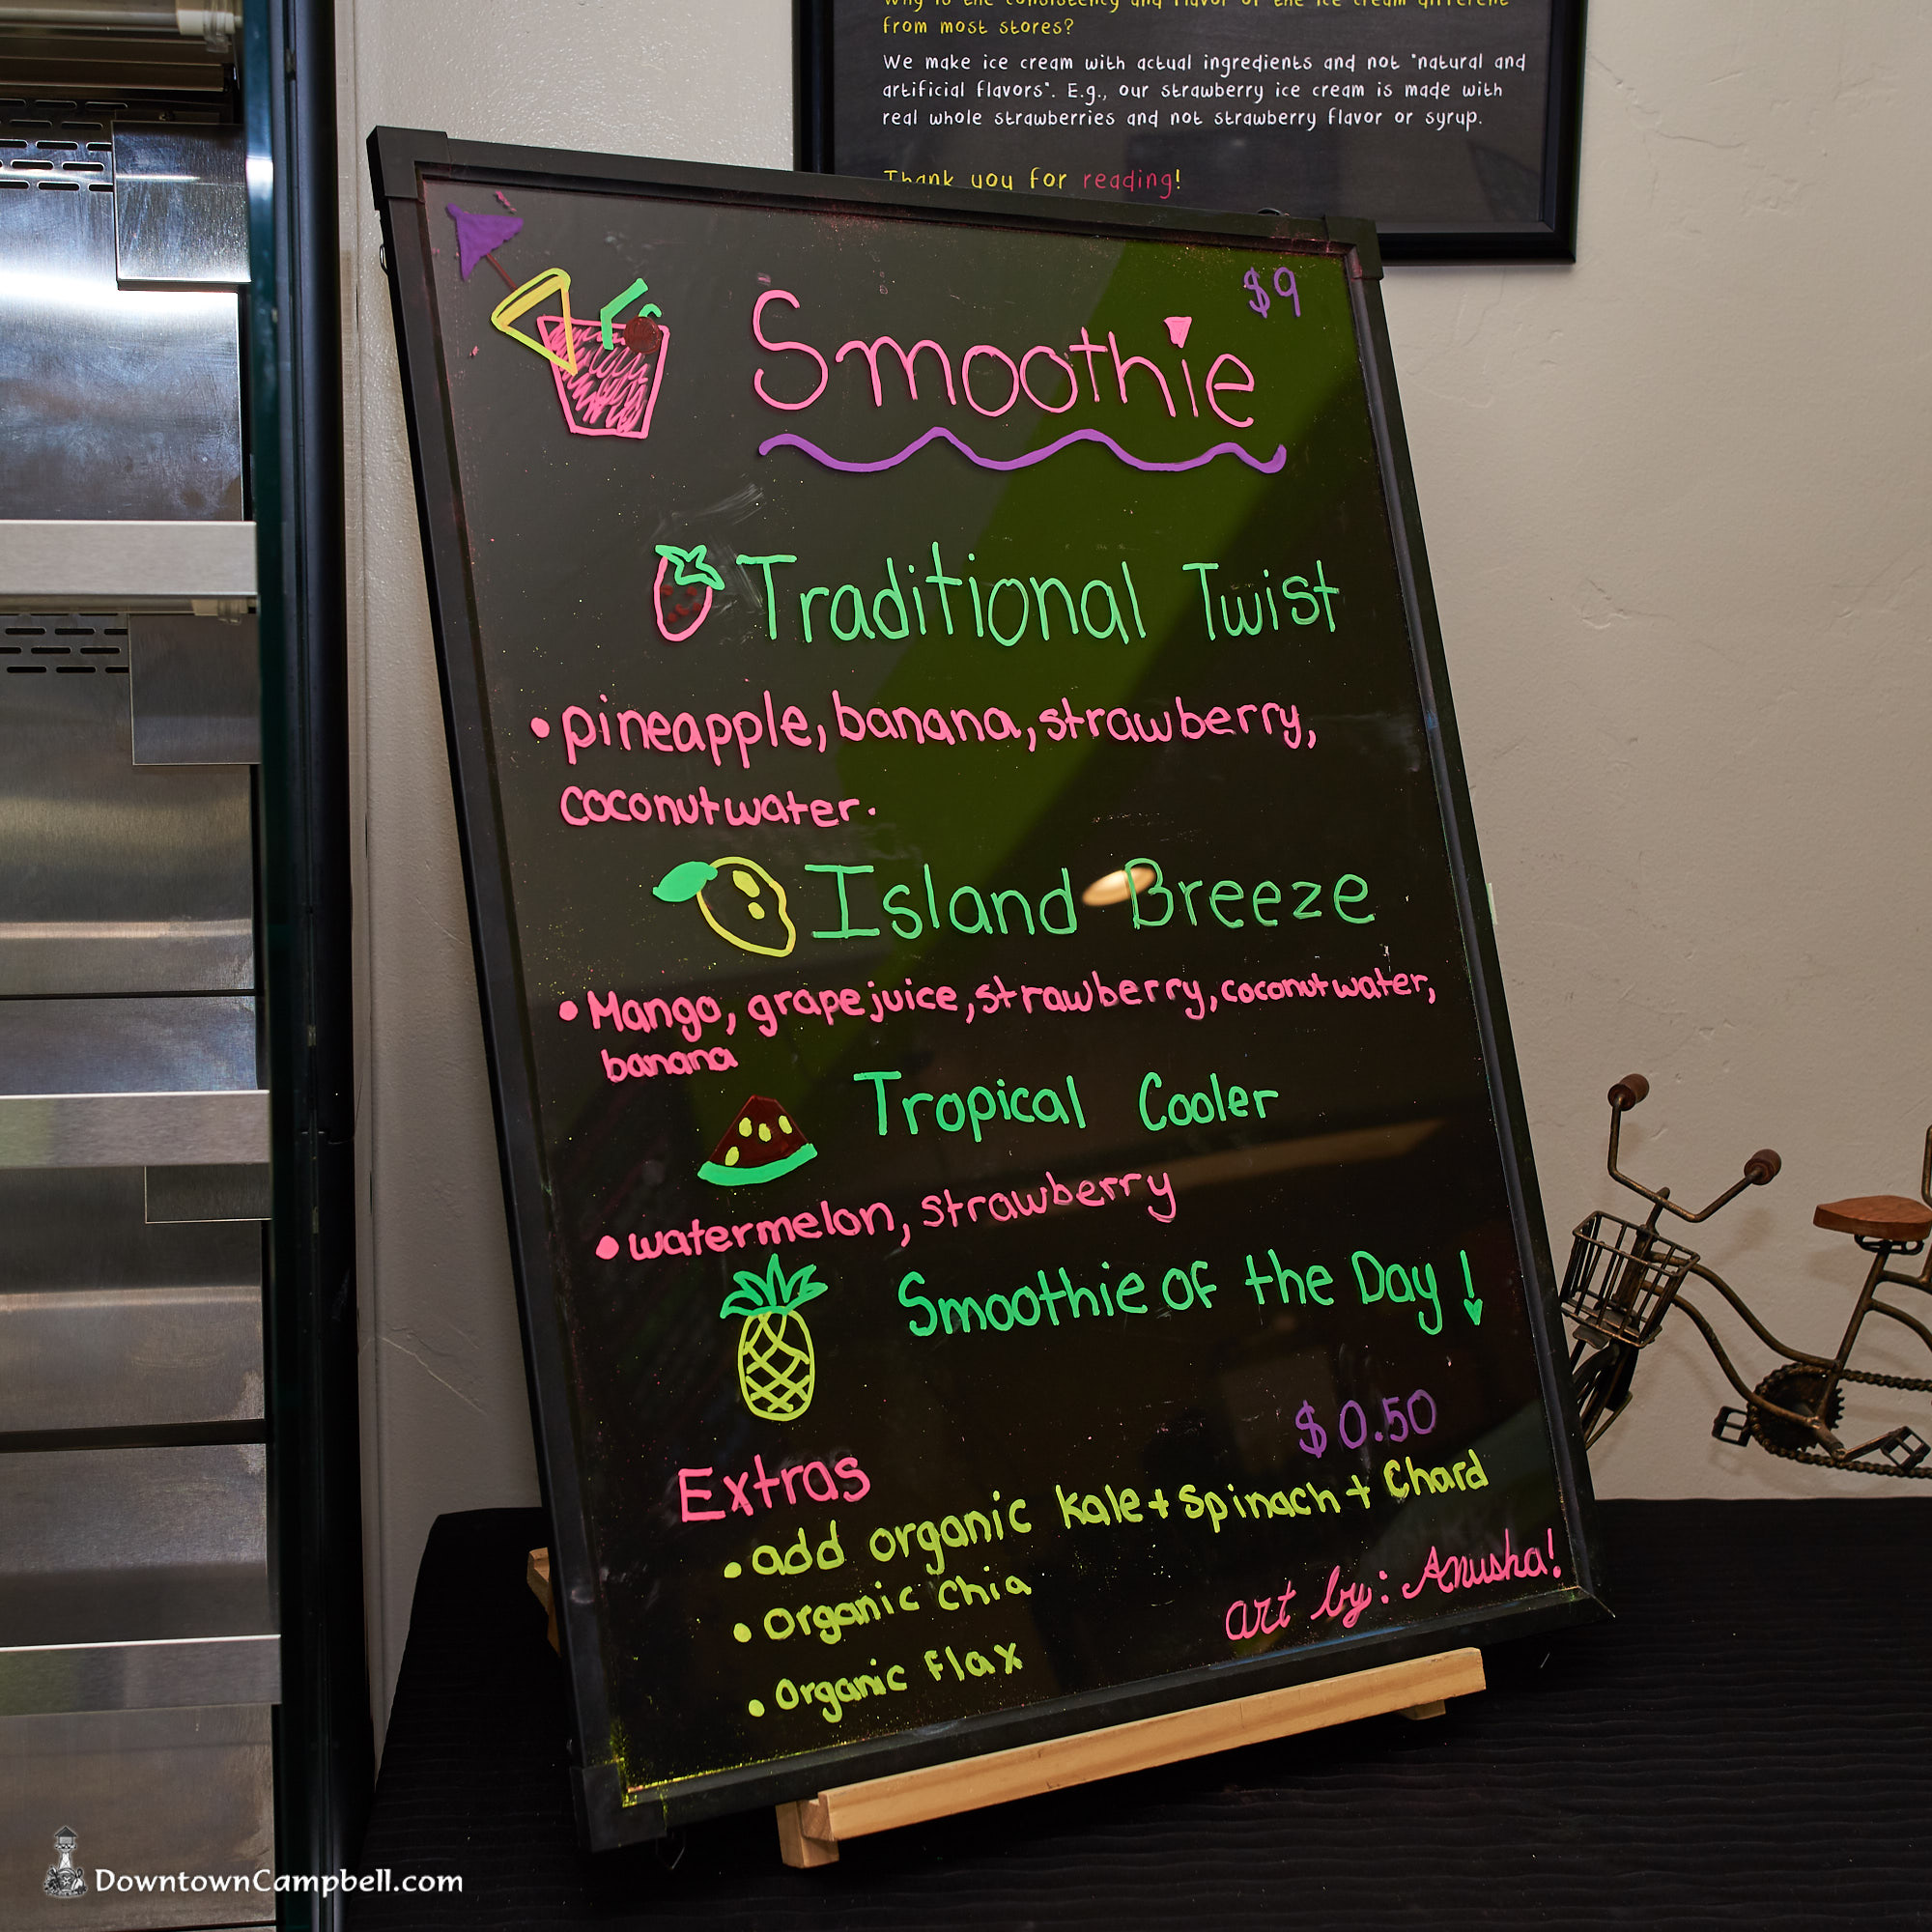 Why is the consistency and flavor of the ice cream different
from most stores?
We make ice cream with actual ingredients and not "natural and
artificial flavors". E.g., our strawberry ice cream is made with
real whole strawberries and not strawberry flavor or syrup.
Thank you for reading!
$9
Smoothie
Traditional Twist
• pineapple, banana, strawberry,
coconut water.
Island Breeze
• Mango, grape juice, strawberry, coconut water,
banana
Tropical Cooler
• watermelon, strawberry
Smoothie of the Day!
$0.50
Extras
• add organic kale + spinach + Chard
• Organic Chia
• Organic Flax
art by: Anusha!
DowntownCampbell.com